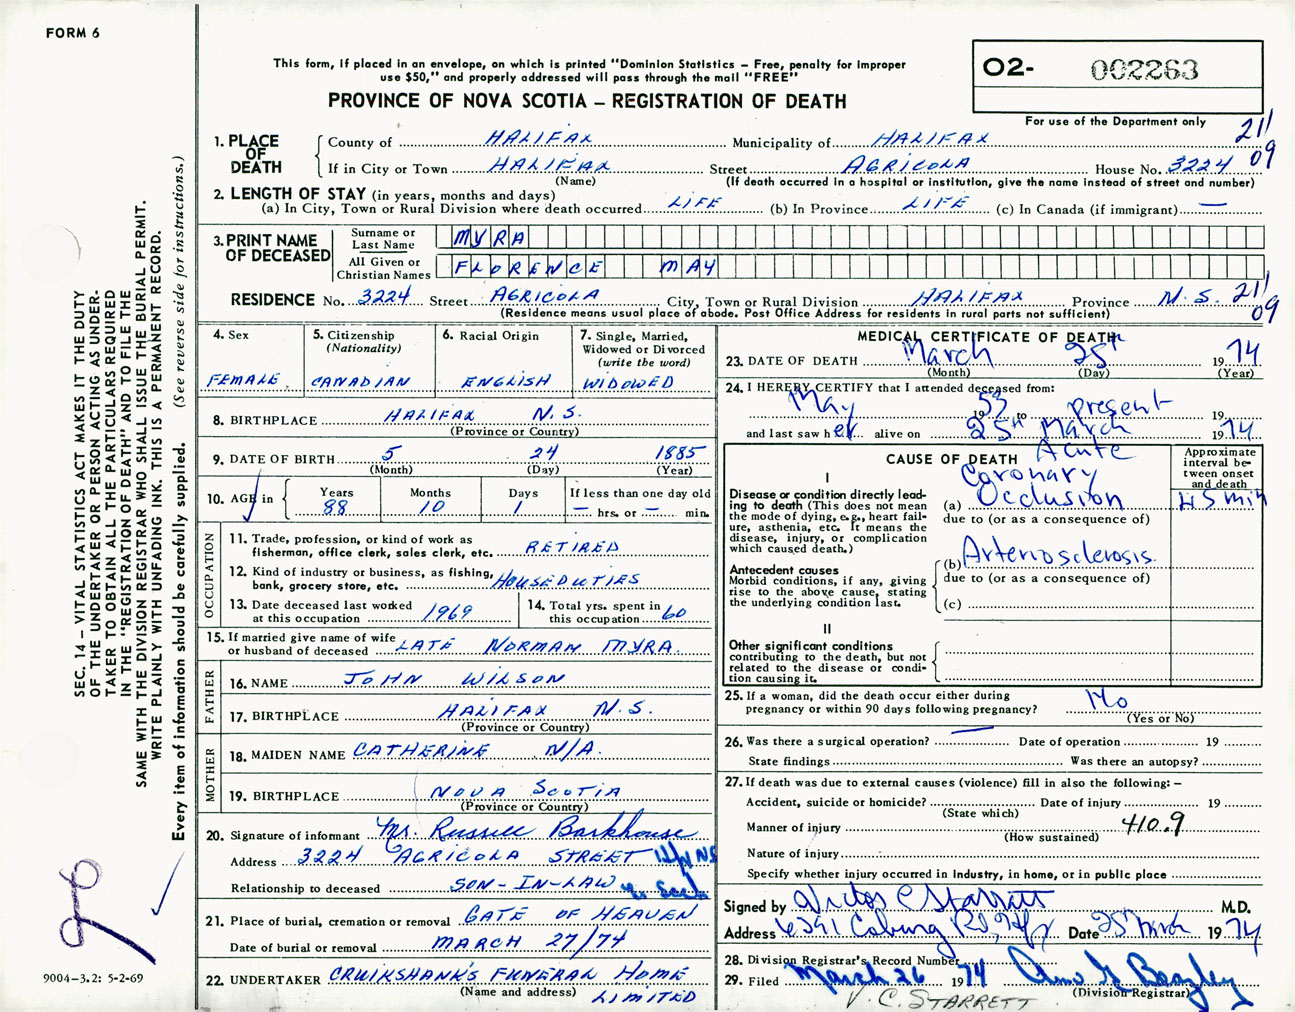 FORM 6
This form, if placed in an envelope, on which is printed "Dominion Statistics – Free, penalty for improper
use $50," and properly addressed will pass through the mail "FREE"
PROVINCE OF NOVA SCOTIA – REGISTRATION OF DEATH
O2- 002263
For use of the Department only
211
09
1. PLACE OF DEATH
County of HALIFAX Municipality of HALIFAX
If in City or Town HALIFAX Street AGRICOLA House No. 3224
(Name) (If death occurred in a hospital or institution, give the name instead of street and number)
2. LENGTH OF STAY (in years, months and days)
(a) In City, Town or Rural Division where death occurred LIFE (b) In Province LIFE (c) In Canada (if immigrant) —
3. PRINT NAME OF DECEASED
Surname or Last Name MYRA
All Given or Christian Names FLORENCE MAY
RESIDENCE No. 3224 Street AGRICOLA City, Town or Rural Division HALIFAX Province N.S. 211
09
(Residence means usual place of abode. Post Office Address for residents in rural parts not sufficient)
4. Sex
FEMALE
5. Citizenship
(Nationality)
CANADIAN
6. Racial Origin
ENGLISH
7. Single, Married,
Widowed or Divorced
(write the word)
WIDOWED
8. BIRTHPLACE HALIFAX N.S.
(Province or Country)
9. DATE OF BIRTH 5 24 1885
(Month) (Day) (Year)
10. AGE in
Years Months Days If less than one day old
88 10 1 — hrs. or — min.
OCCUPATION
11. Trade, profession, or kind of work as
fisherman, office clerk, sales clerk, etc. RETIRED
12. Kind of industry or business, as fishing,
bank, grocery store, etc. HOUSEDUTIES
13. Date deceased last worked
at this occupation 1969
14. Total yrs. spent in
this occupation 60
15. If married give name of wife
or husband of deceased LATE NORMAN MYRA
FATHER
16. NAME JOHN WILSON
17. BIRTHPLACE HALIFAX N.S.
(Province or Country)
MOTHER
18. MAIDEN NAME CATHERINE N/A.
19. BIRTHPLACE NOVA SCOTIA
(Province or Country)
20. Signature of informant Mr. Russell Barkhouse
Address 3224 AGRICOLA STREET Hfx NS
Relationship to deceased SON-IN-LAW
21. Place of burial, cremation or removal GATE OF HEAVEN
Date of burial or removal MARCH 27/74
22. UNDERTAKER CRUIKSHANK'S FUNERAL HOME
(Name and address) LIMITED
MEDICAL CERTIFICATE OF DEATH
23. DATE OF DEATH March 25th 1974
(Month) (Day) (Year)
24. I HEREBY CERTIFY that I attended deceased from:
May 1953 to present 19
and last saw her alive on 25th March 1974
CAUSE OF DEATH
Approximate interval between onset and death
I
Disease or condition directly leading to death (This does not mean the mode of dying, e.g., heart failure, asthenia, etc. It means the disease, injury, or complication which caused death.)
Acute
Coronary
(a) Occlusion 45 min
due to (or as a consequence of)
Antecedent causes
Morbid conditions, if any, giving rise to the above cause, stating the underlying condition last.
(b) Arteriosclerosis
due to (or as a consequence of)
(c)
II
Other significant conditions
contributing to the death, but not related to the disease or condition causing it.
25. If a woman, did the death occur either during
pregnancy or within 90 days following pregnancy? No
(Yes or No)
26. Was there a surgical operation? — Date of operation 19
State findings Was there an autopsy?
27. If death was due to external causes (violence) fill in also the following: –
Accident, suicide or homicide? Date of injury 19
(State which)
Manner of injury 410.9
(How sustained)
Nature of injury
Specify whether injury occurred in Industry, in home, or in public place
Signed by Victor C Starrett M.D.
Address 6391 Coburg Rd, Hfx Date 25 March 1974
28. Division Registrar's Record Number
29. Filed March 26 1974
(Division Registrar)
V. C. STARRETT
SEC. 14 – VITAL STATISTICS ACT MAKES IT THE DUTY
OF THE UNDERTAKER OR PERSON ACTING AS UNDER-
TAKER TO OBTAIN ALL THE PARTICULARS REQUIRED
IN THE "REGISTRATION OF DEATH" AND TO FILE THE
SAME WITH THE DIVISION REGISTRAR WHO SHALL ISSUE THE BURIAL PERMIT.
WRITE PLAINLY WITH UNFADING INK. THIS IS A PERMANENT RECORD.
Every item of information should be carefully supplied. (See reverse side for instructions.)
9004-3.2: 5-2-69